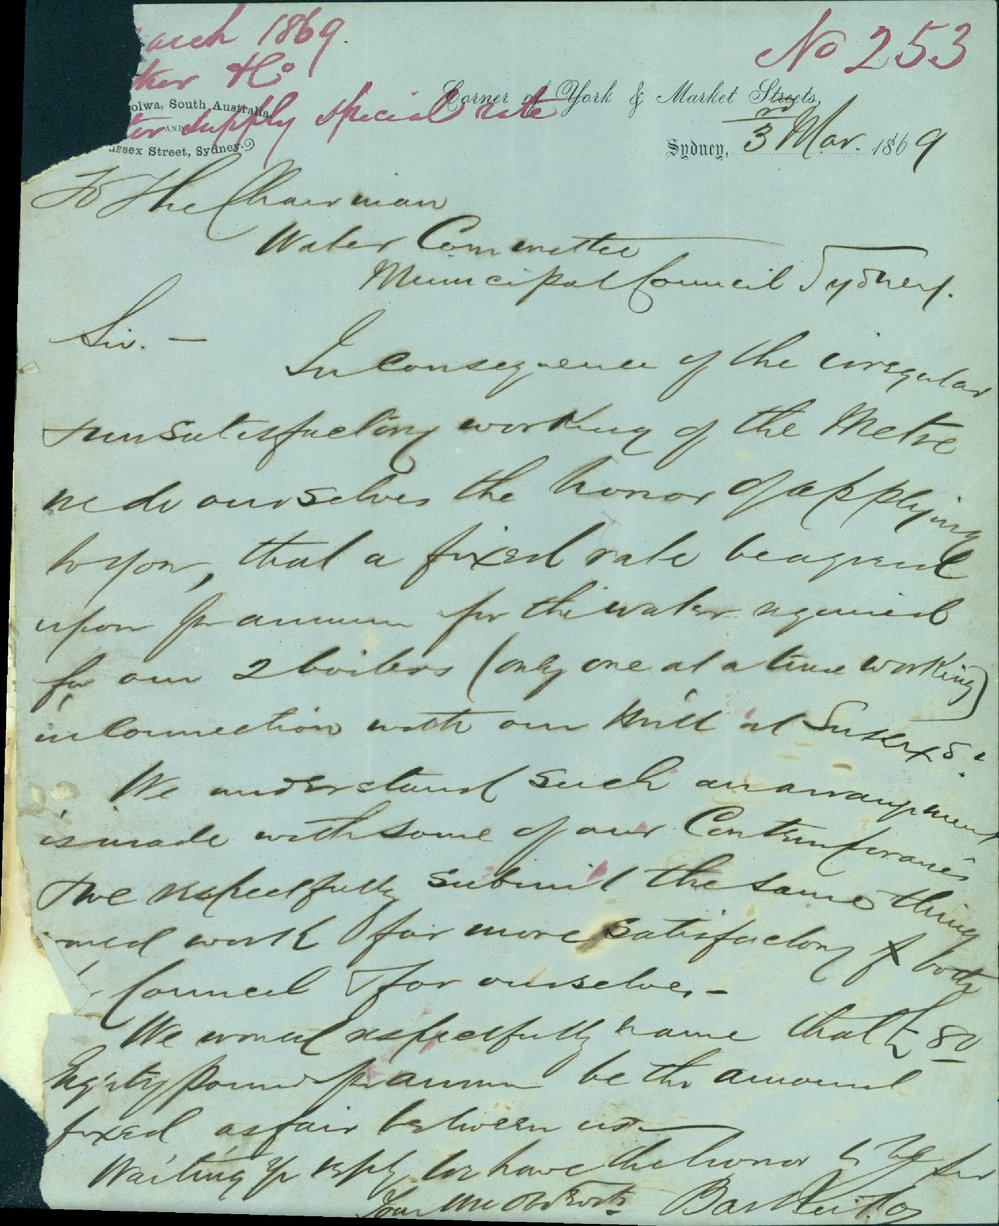 arch 1869. No 253
ker & Co
olwa, South Australia, Corner of York & Market Streets,
AND
ter supply special rate
ussex Street, Sydney. Sydney, 3rd Mar. 1869
To The Chairman
Water Committee
Municipal Council Sydney.
Sir. – In consequence of the irregular
& unsatisfactory working of the Metre
we do ourselves the honor of applying
to you, that a fixed rate be agreed
upon per annum for the water required
for our 2 boilers (only one at a time working)
in connection with our Mill at Sussex St
We understand such an arrangement
is made with some of our Contemporaries
& we respectfully submit the same thing
work far more satisfactory for both
Council & for ourselves. –
We would respectfully name that £80
Eighty pounds per annum be the amount
fixed as fair between us –
Waiting yr reply we have the honor to be Sir
Your Mo Obdt